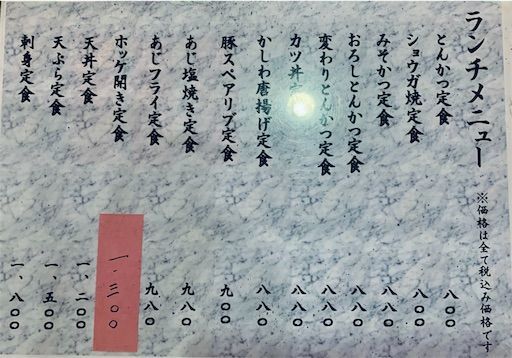 ランチメニュー
※価格は全て税込み価格です
とんかつ定食 八〇〇
ショウガ焼定食 八〇〇
みそかつ定食 八八〇
おろしとんかつ定食 八八〇
変わりとんかつ定食 八八〇
カツ丼定食 八八〇
かしわ唐揚げ定食 八八〇
豚スペアリブ定食 九〇〇
あじ塩焼き定食 九八〇
あじフライ定食 九八〇
ホッケ開き定食 一、三〇〇
天丼定食 一、二〇〇
天ぷら定食 一、五〇〇
刺身定食 一、八〇〇